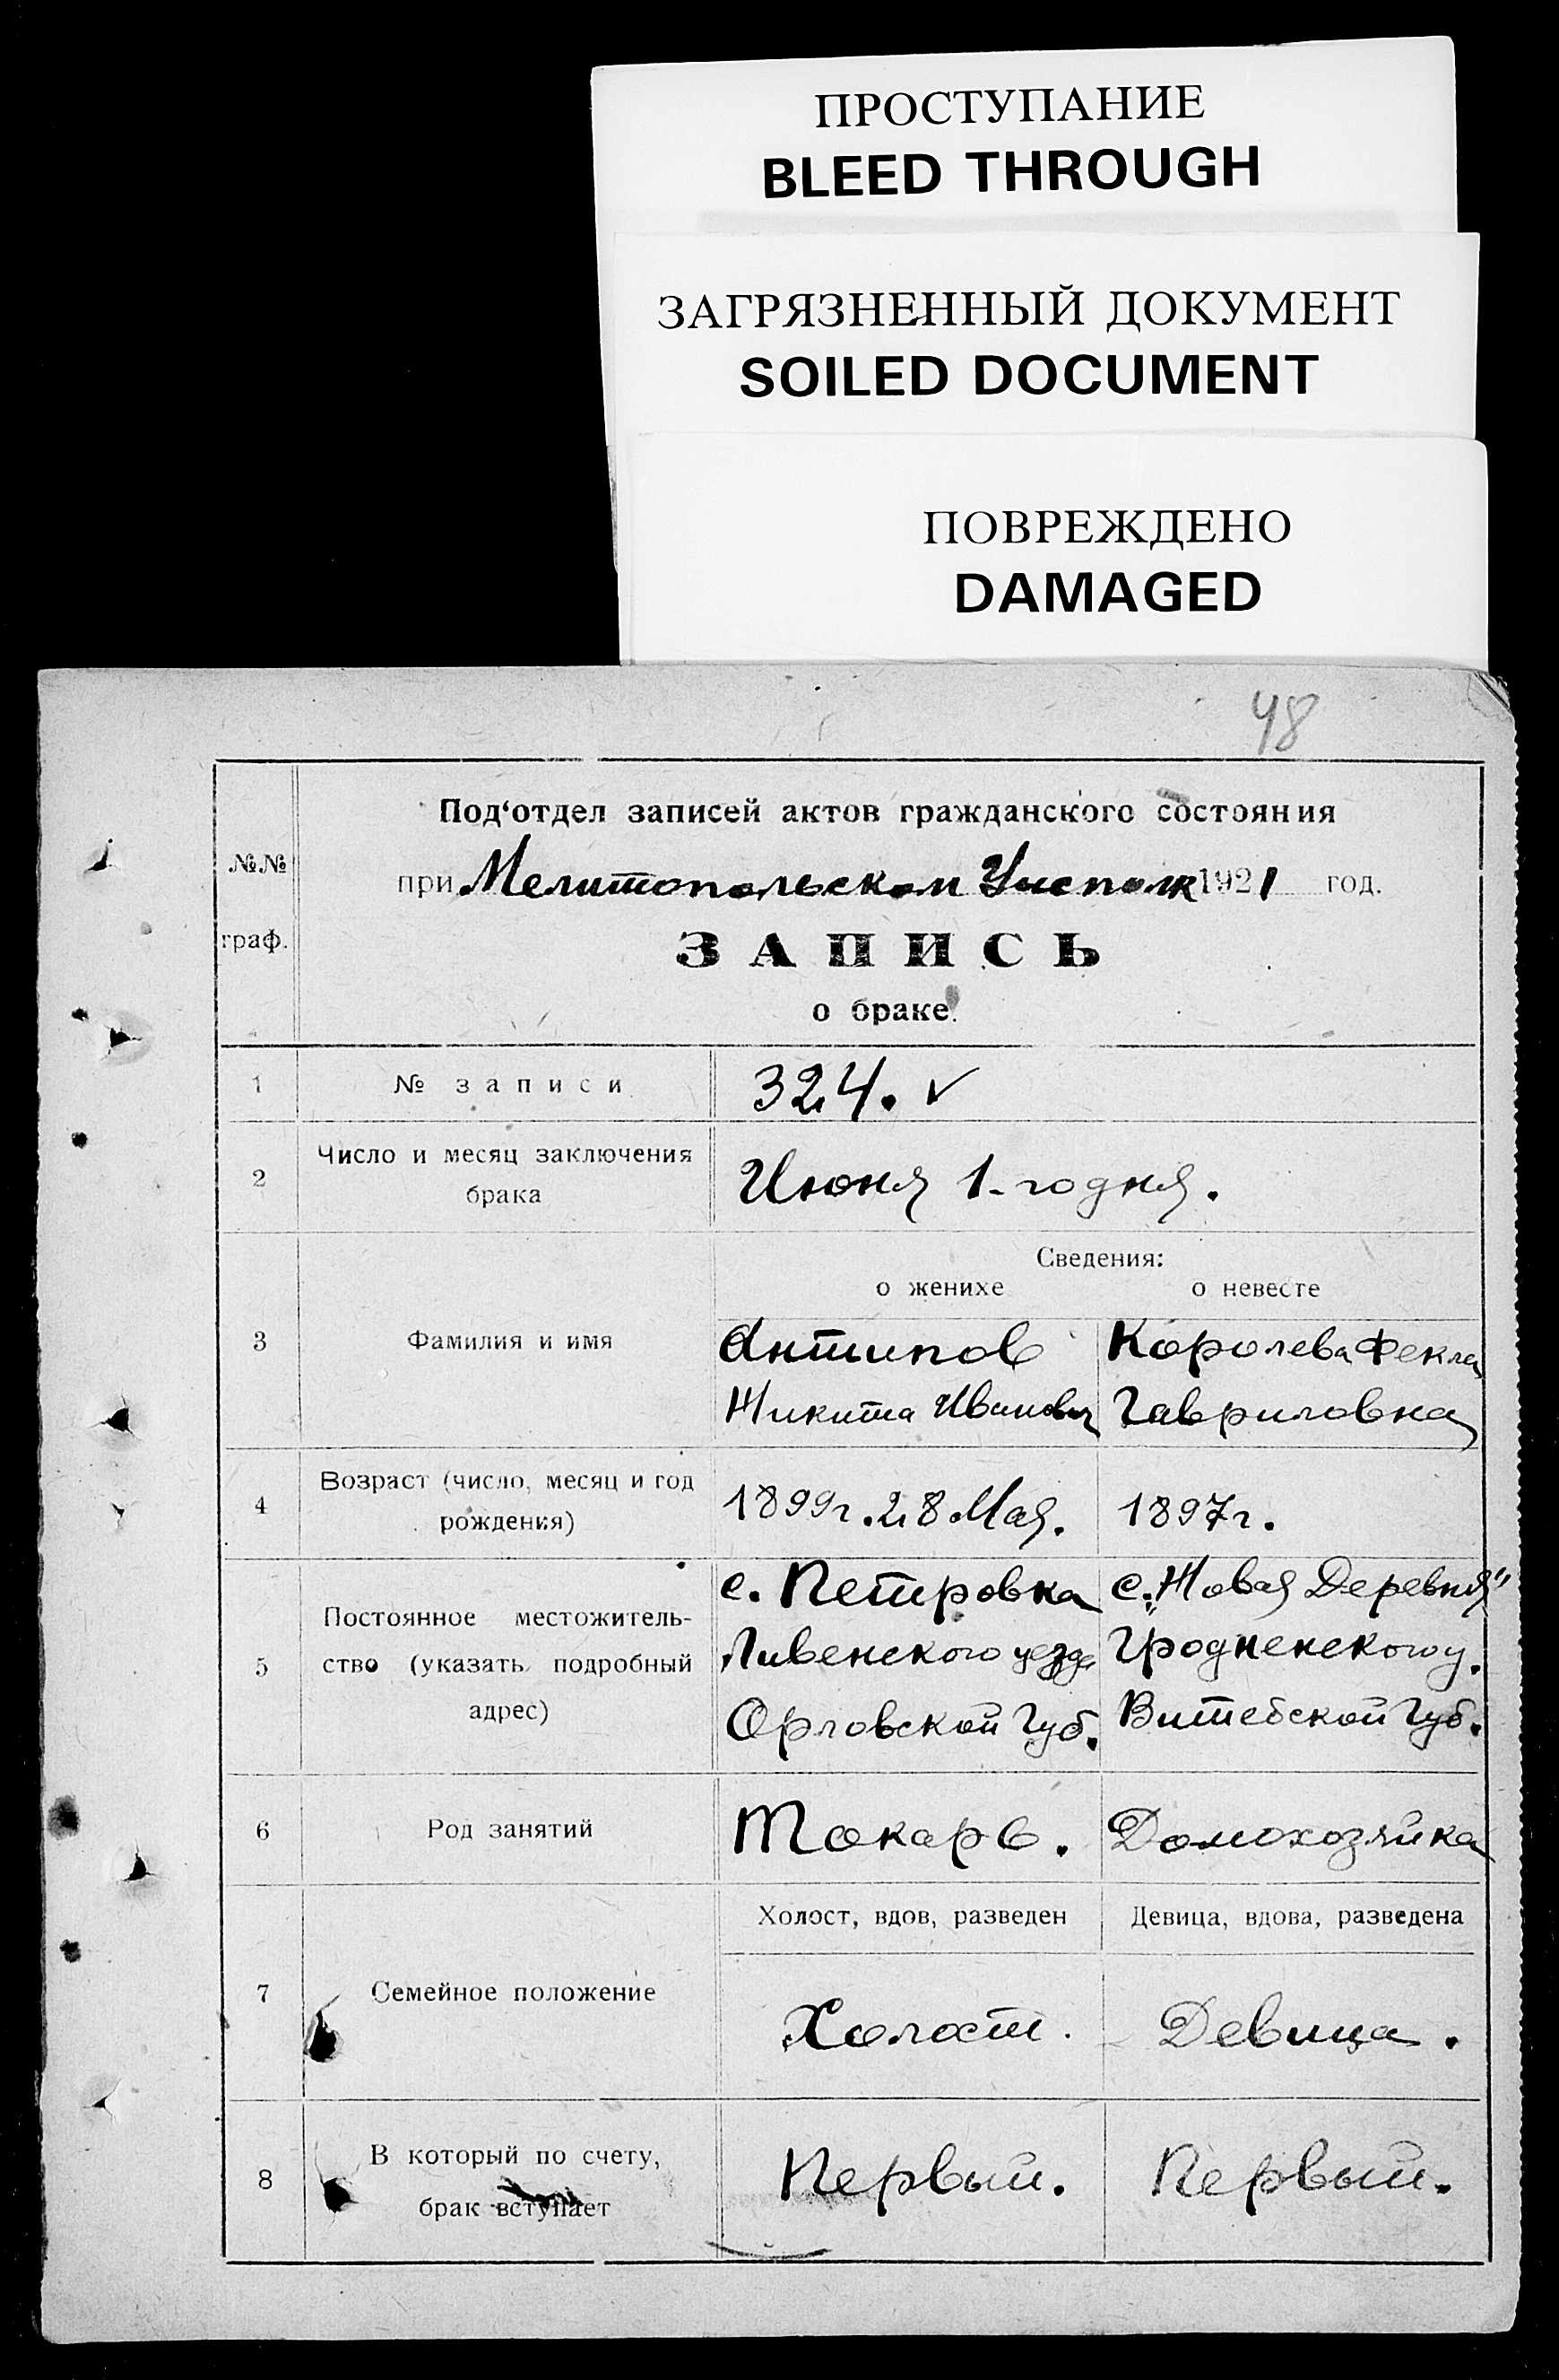 ПРОСТУПАНИЕ
BLEED THROUGH
ЗАГРЯЗНЕННЫЙ ДОКУМЕНТ
SOILED DOCUMENT
ПОВРЕЖДЕНО
DAMAGED
48
№№ граф.
Под‘отдел записей актов гражданского состояния
при Мелитопольском Уисполк 1921 год.
ЗАПИСЬ
о браке.
1 № записи 324. ✓
2 Число и месяц заключения
брака
Июня 1-го дня.
Сведения:
о женихе о невесте
3 Фамилия и имя
Антипов
Никита Иванович
Королева Фекла
Гавриловна
4 Возраст (число, месяц и год
рождения)
1899г. 28 Мая.
1897г.
5 Постоянное местожитель-
ство (указать подробный
адрес)
с. Петровка
Ливенского уезда
Орловской Губ.
с. „Новая Деревня"
Гродненского у.
Витебской Губ.
6 Род занятий
Токарь.
Домохозяйка
Холост, вдов, разведен
Девица, вдова, разведена
7 Семейное положение
Холост.
Девица.
8 В который по счету,
брак вступает
Первый.
Первый.